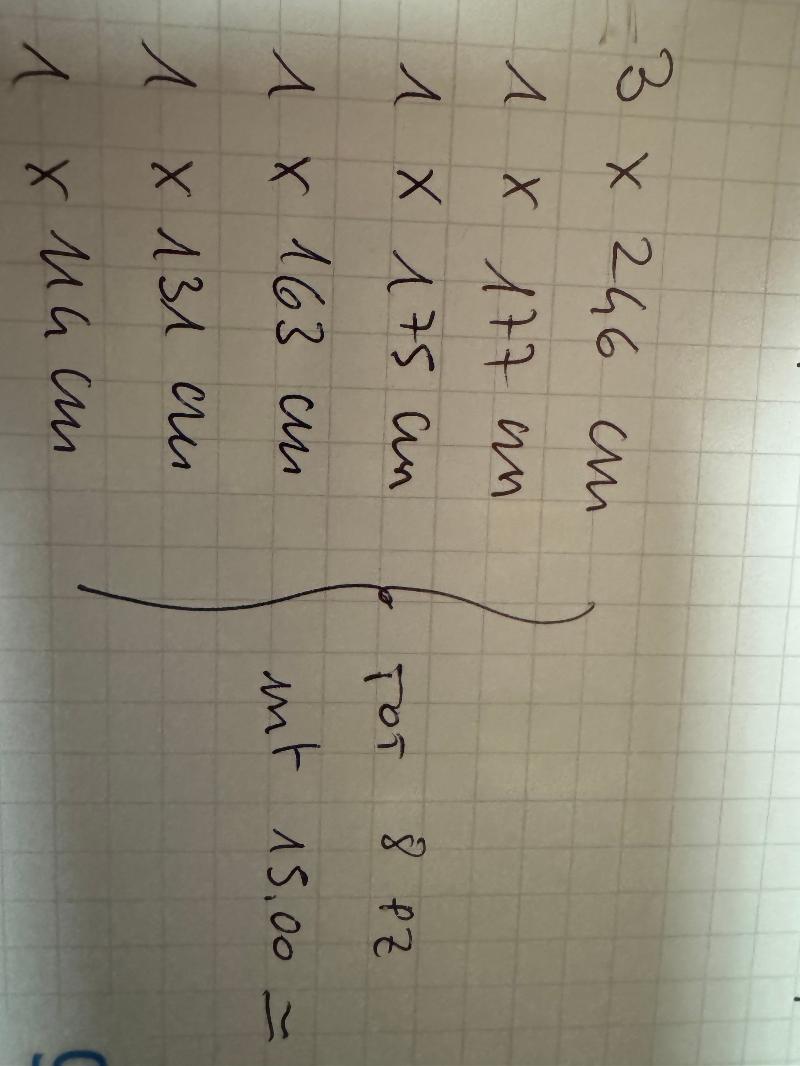 = 3 x 246 cm
1 x 177 cm
1 x 175 cm
1 x 163 cm
1 x 131 cm
1 x 114 cm
TOT 8 PZ
mt 15,00 ≃